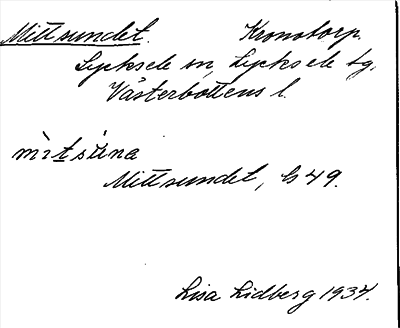 Mittsundet. Kronotorp.
Lycksele sn, Lycksele tg.
Västerbottens l.
Mittsundet, G 49.
Lisa Lidberg 1934.